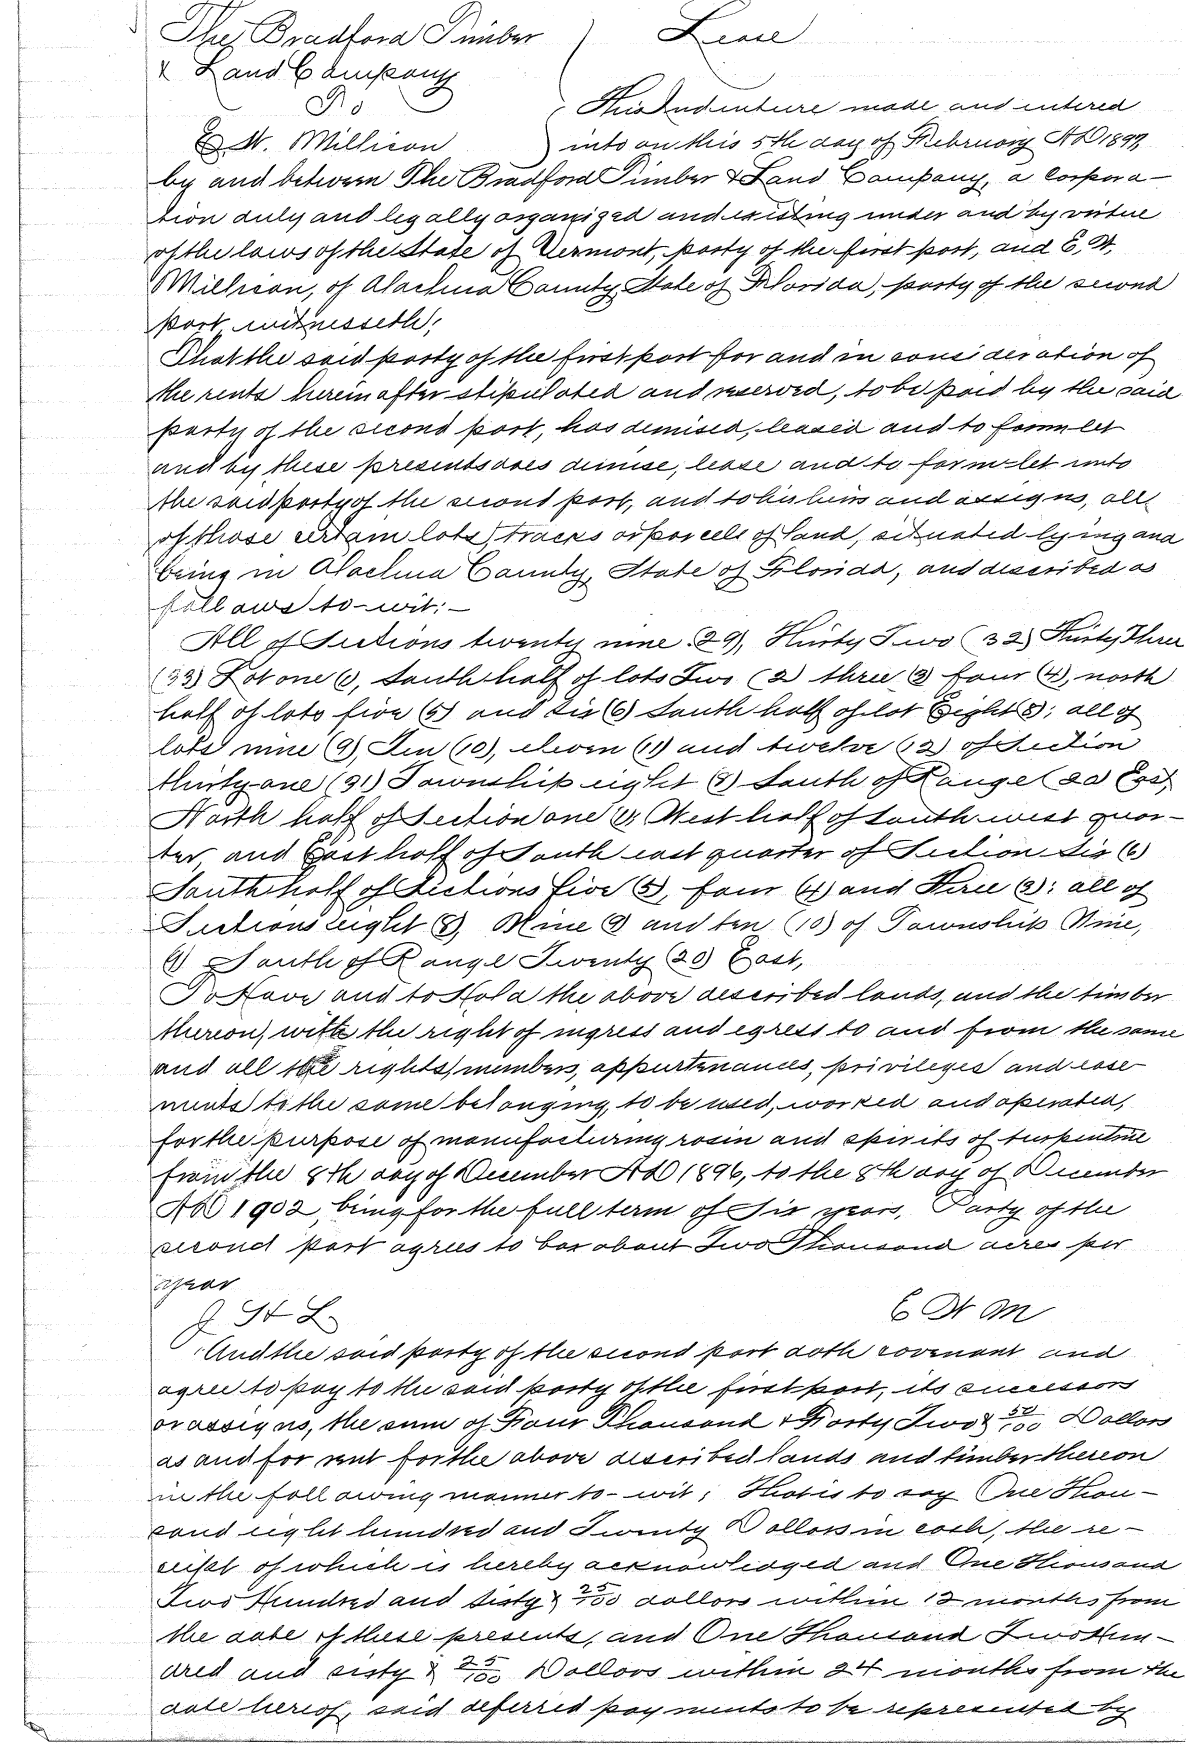 The Bradford Timber ) Lease
& Land Company
To ( This Indenture made and entered
E. W. Millican ) into on this 5th day of February AD 1897,
by and between The Bradford Timber & Land Company, a corpora-
tion duly and legally organized and existing under and by virtue
of the laws of the State of Vermont, party of the first part, and E. W.
Millican, of Alachua County, State of Florida, party of the second
part, witnesseth;
That the said party of the first part for and in consideration of
the rents hereinafter stipulated and reserved, to be paid by the said
party of the second part, has demised, leased and to farm let
and by these presents does demise, lease and to farm-let unto
the said party of the second part, and to his heirs and assigns, all
of those certain lots, tracks or parcells of land, situated lying and
being in Alachua County, State of Florida, and described as
follows to-wit:-
All of Sections twenty nine (29), Thirty Two (32) Thirty Three
(33) Lot one (1), South half of lots Two (2) three (3) four (4), north
half of lots five (5) and six (6) South half of lot Eight (8); all of
lots nine (9), Ten (10), eleven (11) and twelve (12) of Section
thirty-one (31) Township eight (8) South of Range (20) East,
North half of Section one (1), West half of South west quar-
ter, and East half of South east quarter of Section Six (6)
South half of Sections five (5), four (4) and Three (3); all of
Sections eight (8), Nine (9) and ten (10) of Township Nine,
(9) South of Range Twenty (20) East,
To Have and to Hold the above described lands, and the timber
thereon, with the right of ingress and egress to and from the same
and all the rights, members, appurtenances, privileges and ease-
ments to the same belonging, to be used, worked and operated,
for the purpose of manufacturing rosin and spirits of turpentine
from the 8th day of December AD 1896, to the 8th day of December
AD 1902, being for the full term of Six years, Party of the
second part agrees to box about Two Thousand acres per
year
J H L. E W M
And the said party of the second part doth covenant and
agree to pay to the said party of the first part, its successors
or assigns, the sum of Four Thousand & Forty Two & 50/100 Dollars
as and for rent for the above described lands and timber thereon
in the following manner to-wit; That is to say One Thou-
sand eight hundred and Twenty Dollars in cash, the re-
ceipt of which is hereby acknowledged and One thousand
Two Hundred and sixty & 25/100 dollars within 12 months from
the date of these presents, and One Thousand Two Hun-
dred and sixty & 25/100 Dollars within 24 months from the
date hereof, said deferred payments to be represented by